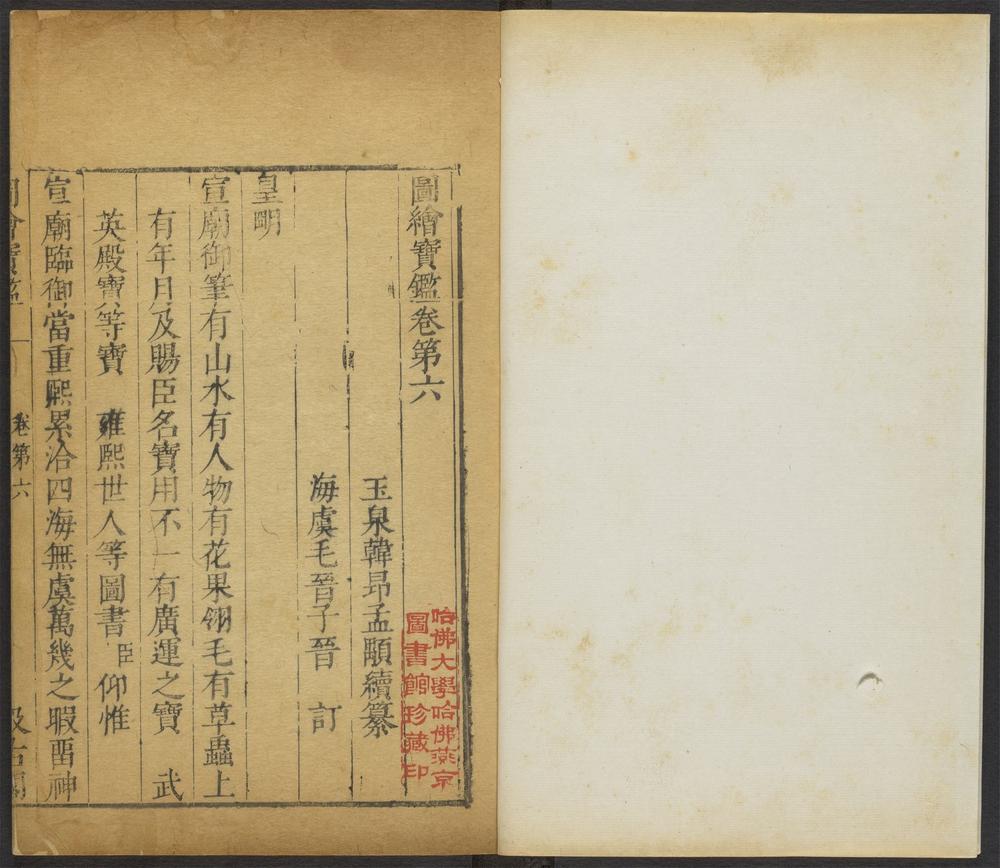 圖繪寶鑑卷第六
玉泉韓昂孟顒續纂
海虞毛晉子晉 訂
皇明
宣廟御筆有山水有人物有花果翎毛有草蟲上
有年月及賜臣名寶用不一有廣運之寶 武
英殿寶等寶 雍熙世人等圖書 臣 仰惟
宣廟臨御當重熙累洽四海無虞萬幾之暇畱神
圖繪寶鑑 卷第六 汲古閣
哈佛大學哈佛燕京
圖書館珍藏印